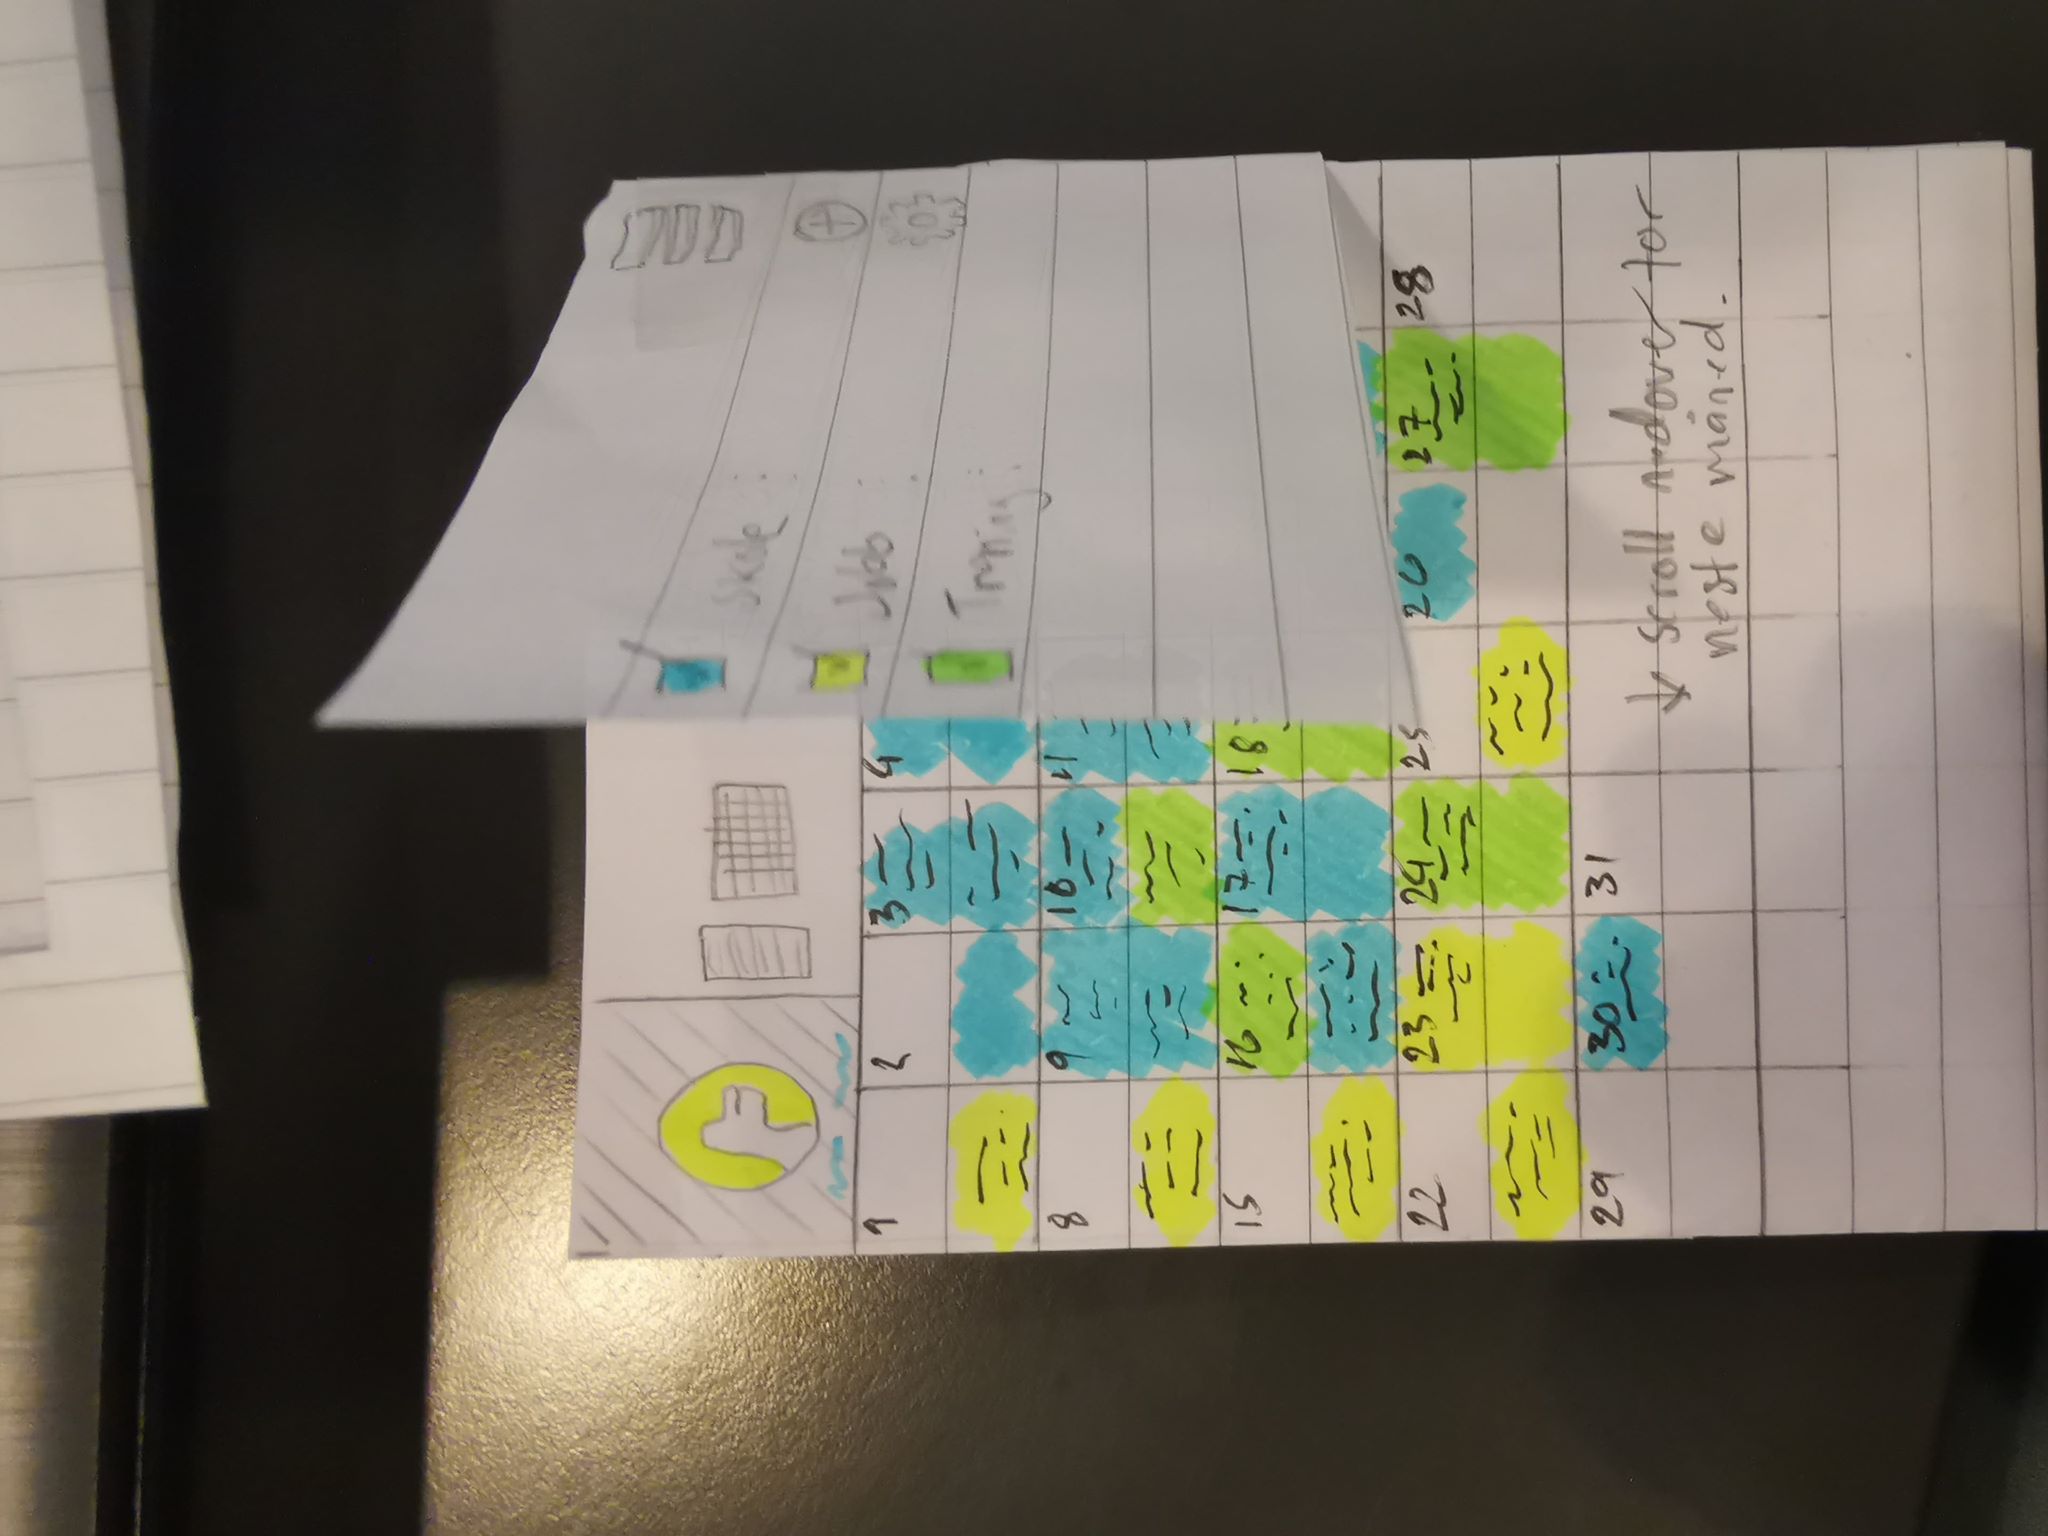 Skole :
Jobb :
Trening :
1 2 3 4
8 9 10 11
15 16 17 18
22 23 24 25 26 27 28
29 30 31
↓ scroll nedover for
neste måned.